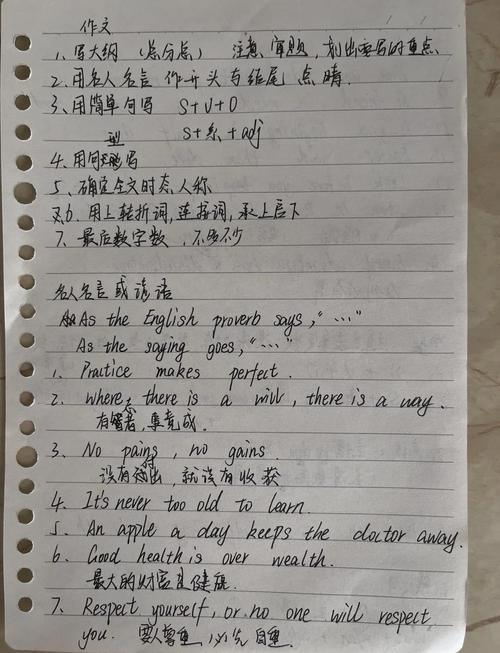 作文
1、写大纲（总分总） 注意 审题，划出要写的重点
2. 用名人名言 作开头与结尾 点睛.
3、用简单句写 S+V+O
S+系+adj
4. 用句型写
5、确定全文时态人称
6. 用上转折词，连接词，承上启下
7、最后数字数，不多不少
名人名言或谚语
As the English proverb says, "…"
As the saying goes, "…"
1. Practice makes perfect.
2. Where there is a will, there is a way.
有志者，事竟成.
3. No pains, no gains.
没有付出，就没有收获
4. It's never too old to learn.
5. An apple a day keeps the doctor away.
6. Good health is over wealth.
最大的财富是健康.
7. Respect yourself, or no one will respect
you. 要人尊重，必先自重.